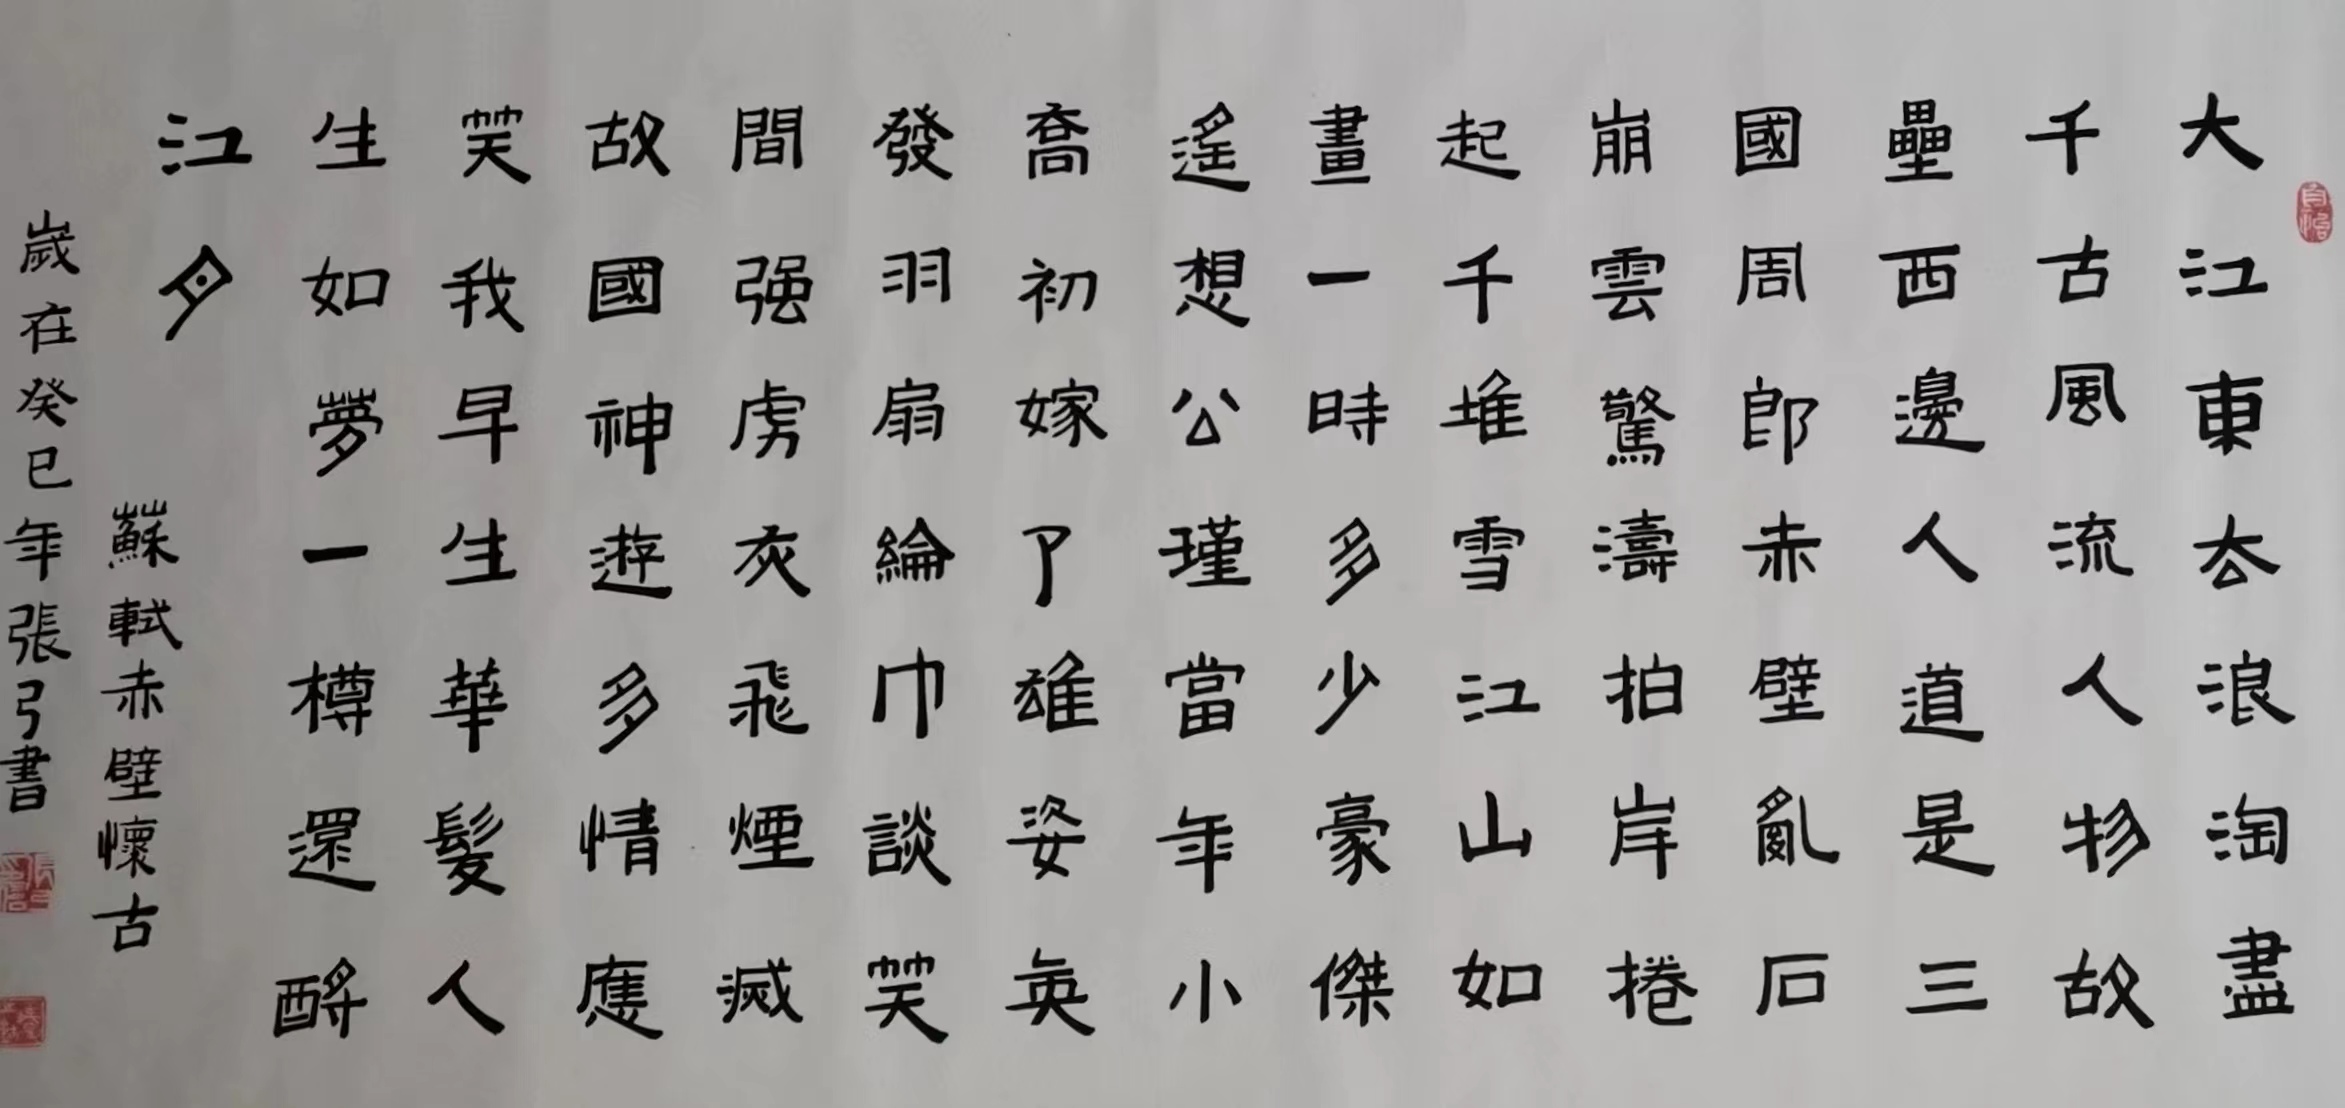 大江東去浪淘盡
千古風流人物故
壘西邊人道是三
國周郎赤壁亂石
崩雲驚濤拍岸捲
起千堆雪江山如
畫一時多少豪傑
遙想公瑾當年小
喬初嫁了雄姿英
發羽扇綸巾談笑
間强虏灰飛煙滅
故國神遊多情應
笑我早生華髮人
生如夢一樽還酹
江月
蘇軾赤壁懷古
歲在癸巳年張弓書